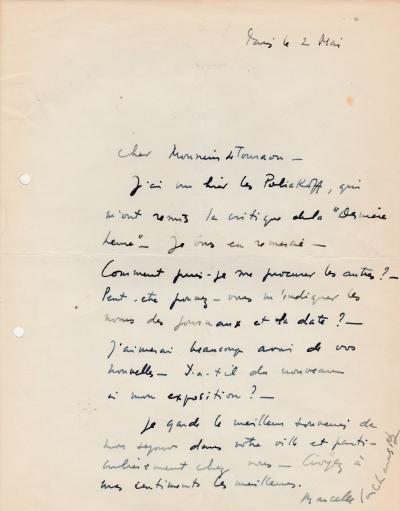 Paris le 2 Mai
Cher Monsieur de Tournon –
J'ai vu hier les Poliakoff, qui
m'ont remis la critique de la "Dernière
Heure" – Je vous en remercie –
Comment puis-je me procurer les autres? –
Peut-être pouvez-vous m'indiquer les
noms des journaux et la date? –
J'aimerai beaucoup avoir de vos
nouvelles – Y-a-t-il du nouveau
à mon exposition? –
Je garde le meilleur souvenir de
mon séjour dans votre ville et parti-
culièrement chez vous – Croyez à
mes sentiments les meilleurs.
Marcelle